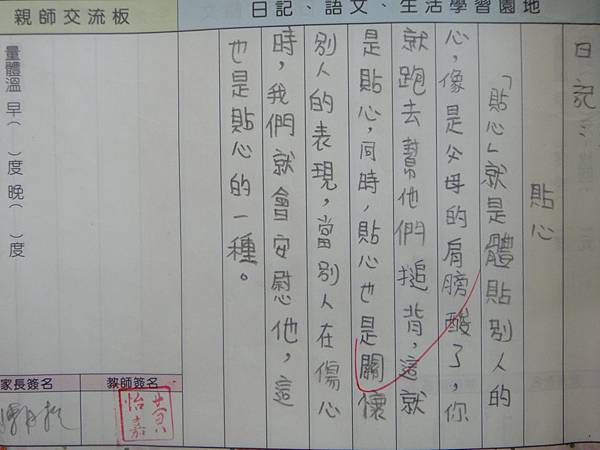 日記、語文、生活學習園地
日記：
貼心
「貼心」就是體貼別人的
心，像是父母的肩膀酸了，你
就跑去幫他們搥背，這就
是貼心，同時，貼心也是關懷
別人的表現，當別人在傷心
時，我們就會安慰他，這
也是貼心的一種。
親師交流板
量體溫 早（　）度 晚（　）度
教師簽名
黃怡嘉
家長簽名